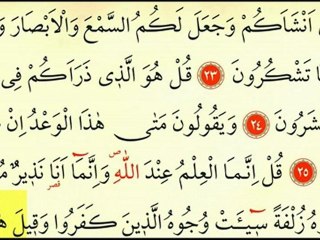 اَنْشَاَكُمْ وَجَعَلَ لَكُمُ السَّمْعَ وَالْاَبْصَارَ
تَشْكُرُونَ ﴿٢٣﴾ قُلْ هُوَ الَّذٖى ذَرَاَكُمْ فِى
﴿٢٤﴾ وَيَقُولُونَ مَتٰى هٰذَا الْوَعْدُ اِنْ
﴿٢٥﴾ قُلْ اِنَّمَا الْعِلْمُ عِنْدَ اللّٰهِ وَاِنَّمَٓا اَنَا۬ نَذٖيرٌ
زُلْفَةً سٖٓيـَٔتْ وُجُوهُ الَّذٖينَ كَفَرُوا وَقٖيلَ